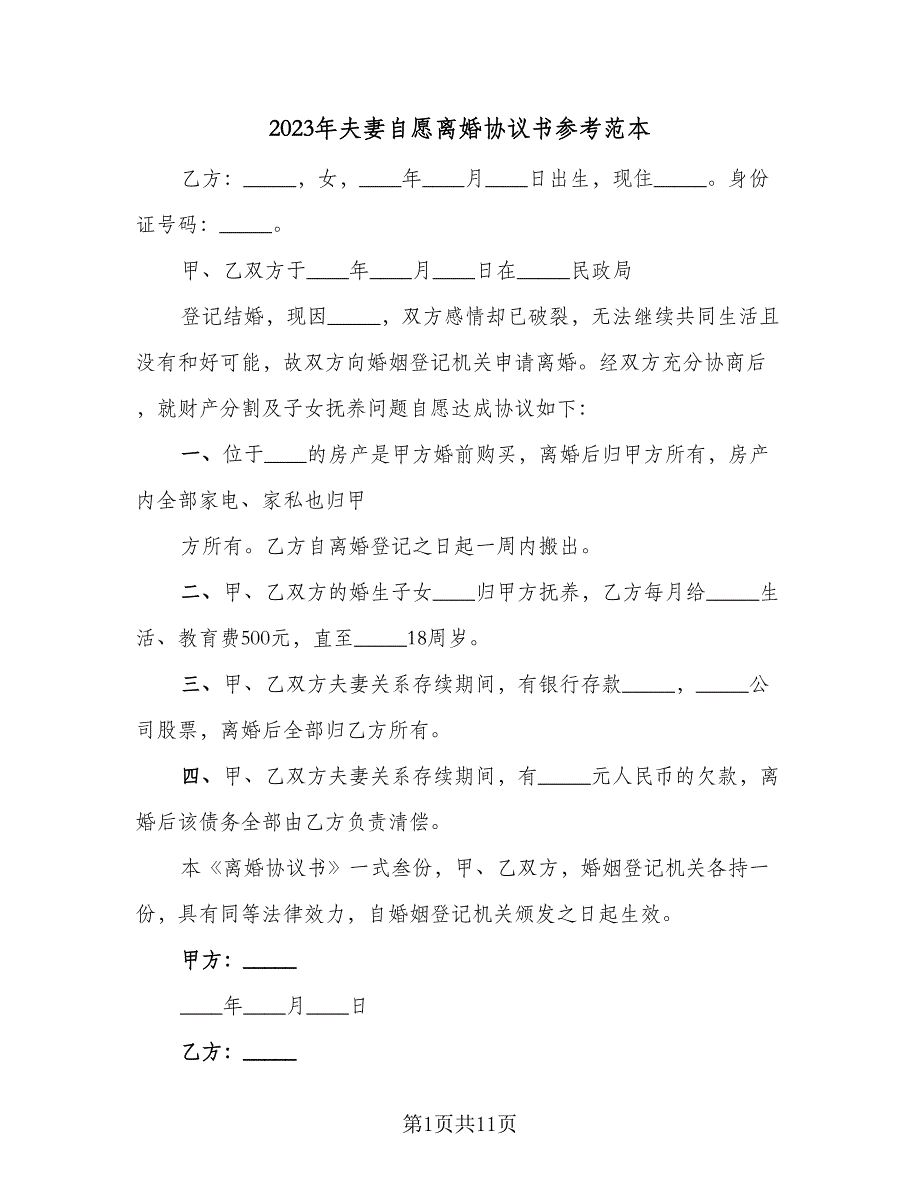 2023年夫妻自愿离婚协议书参考范本
乙方：_____，女，____年____月____日出生，现住_____。身份
证号码：_____。
甲、乙双方于____年____月____日在_____民政局
登记结婚，现因_____，双方感情却已破裂，无法继续共同生活且
没有和好可能，故双方向婚姻登记机关申请离婚。经双方充分协商后
，就财产分割及子女抚养问题自愿达成协议如下：
一、位于____的房产是甲方婚前购买，离婚后归甲方所有，房产
内全部家电、家私也归甲
方所有。乙方自离婚登记之日起一周内搬出。
二、甲、乙双方的婚生子女____归甲方抚养，乙方每月给_____生
活、教育费500元，直至_____18周岁。
三、甲、乙双方夫妻关系存续期间，有银行存款_____，_____公
司股票，离婚后全部归乙方所有。
四、甲、乙双方夫妻关系存续期间，有_____元人民币的欠款，离
婚后该债务全部由乙方负责清偿。
本《离婚协议书》一式叁份，甲、乙双方，婚姻登记机关各持一
份，具有同等法律效力，自婚姻登记机关颁发之日起生效。
甲方：_____
____年____月____日
乙方：_____
第1页共11页